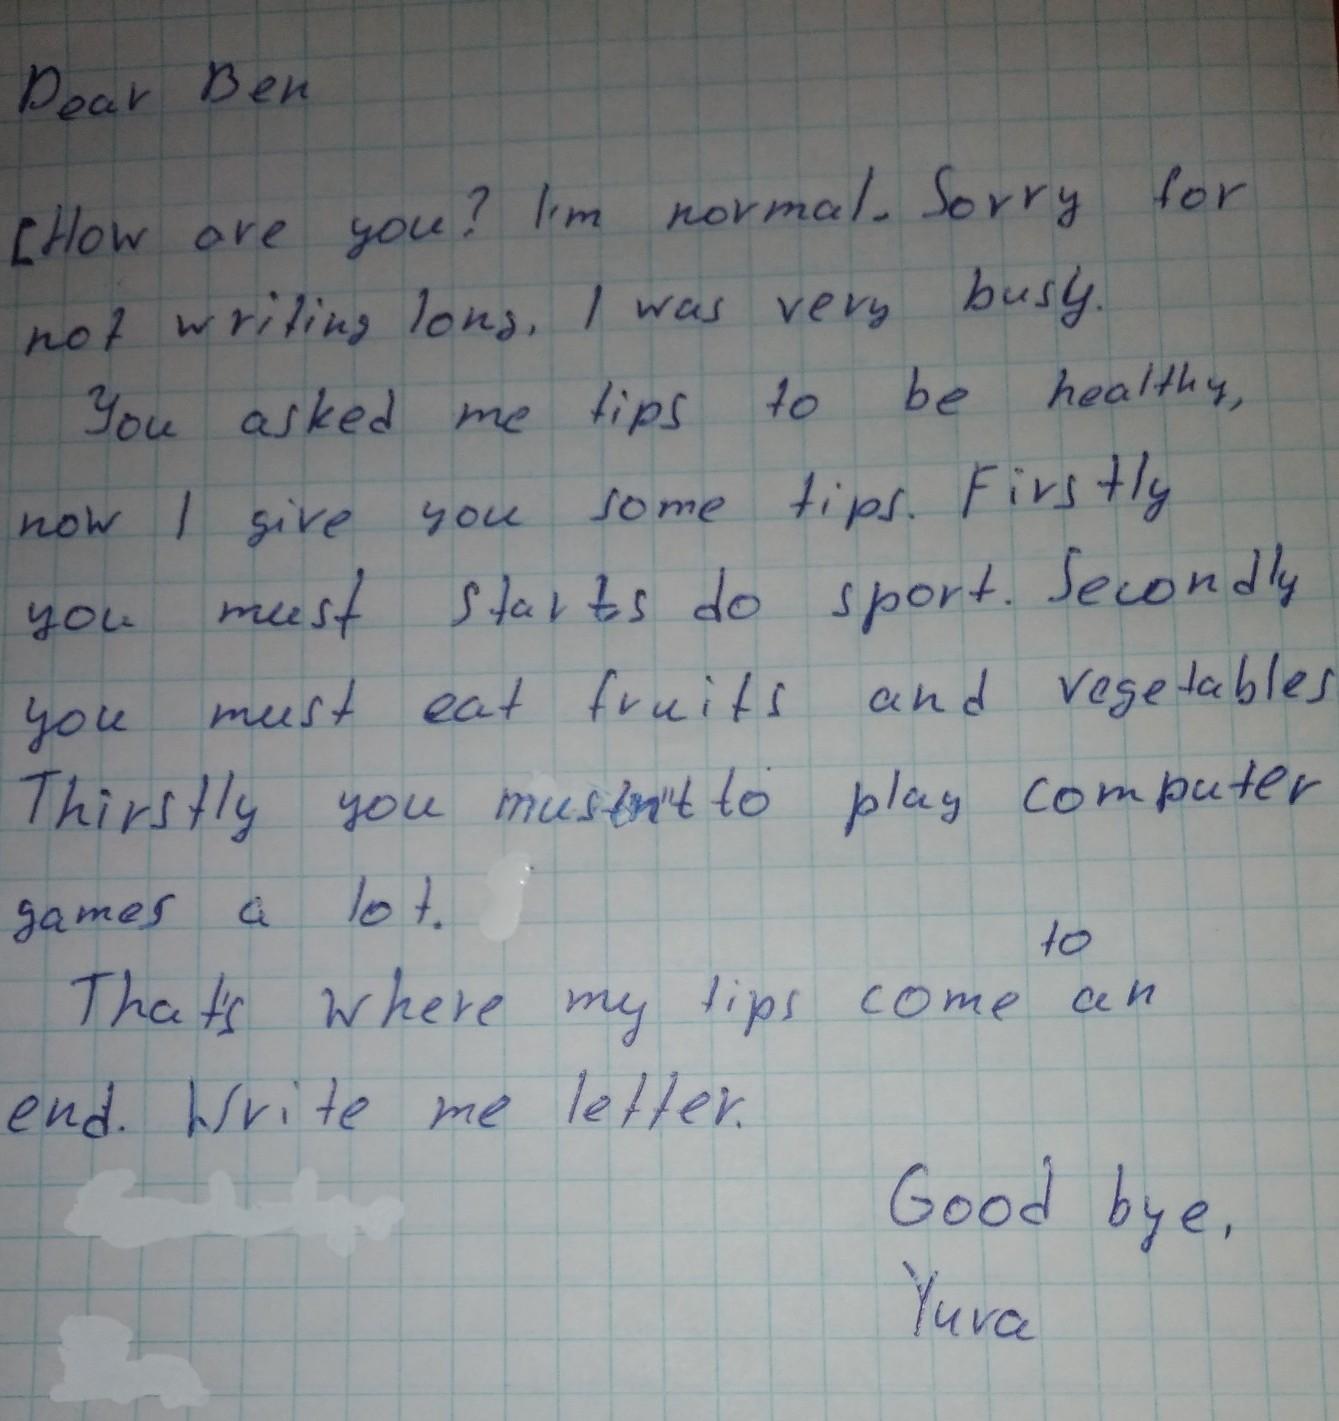 Dear Ben
[How are you? I'm normal. Sorry for
not writing long. I was very busy.
You asked me tips to be healthy,
now I give you some tips. Firstly
you must starts do sport. Secondly
you must eat fruits and vegetables
Thirstly you mustn't to play computer
games a lot.
to
That's where my tips come an
end. Write me letter.
Good bye,
Yura